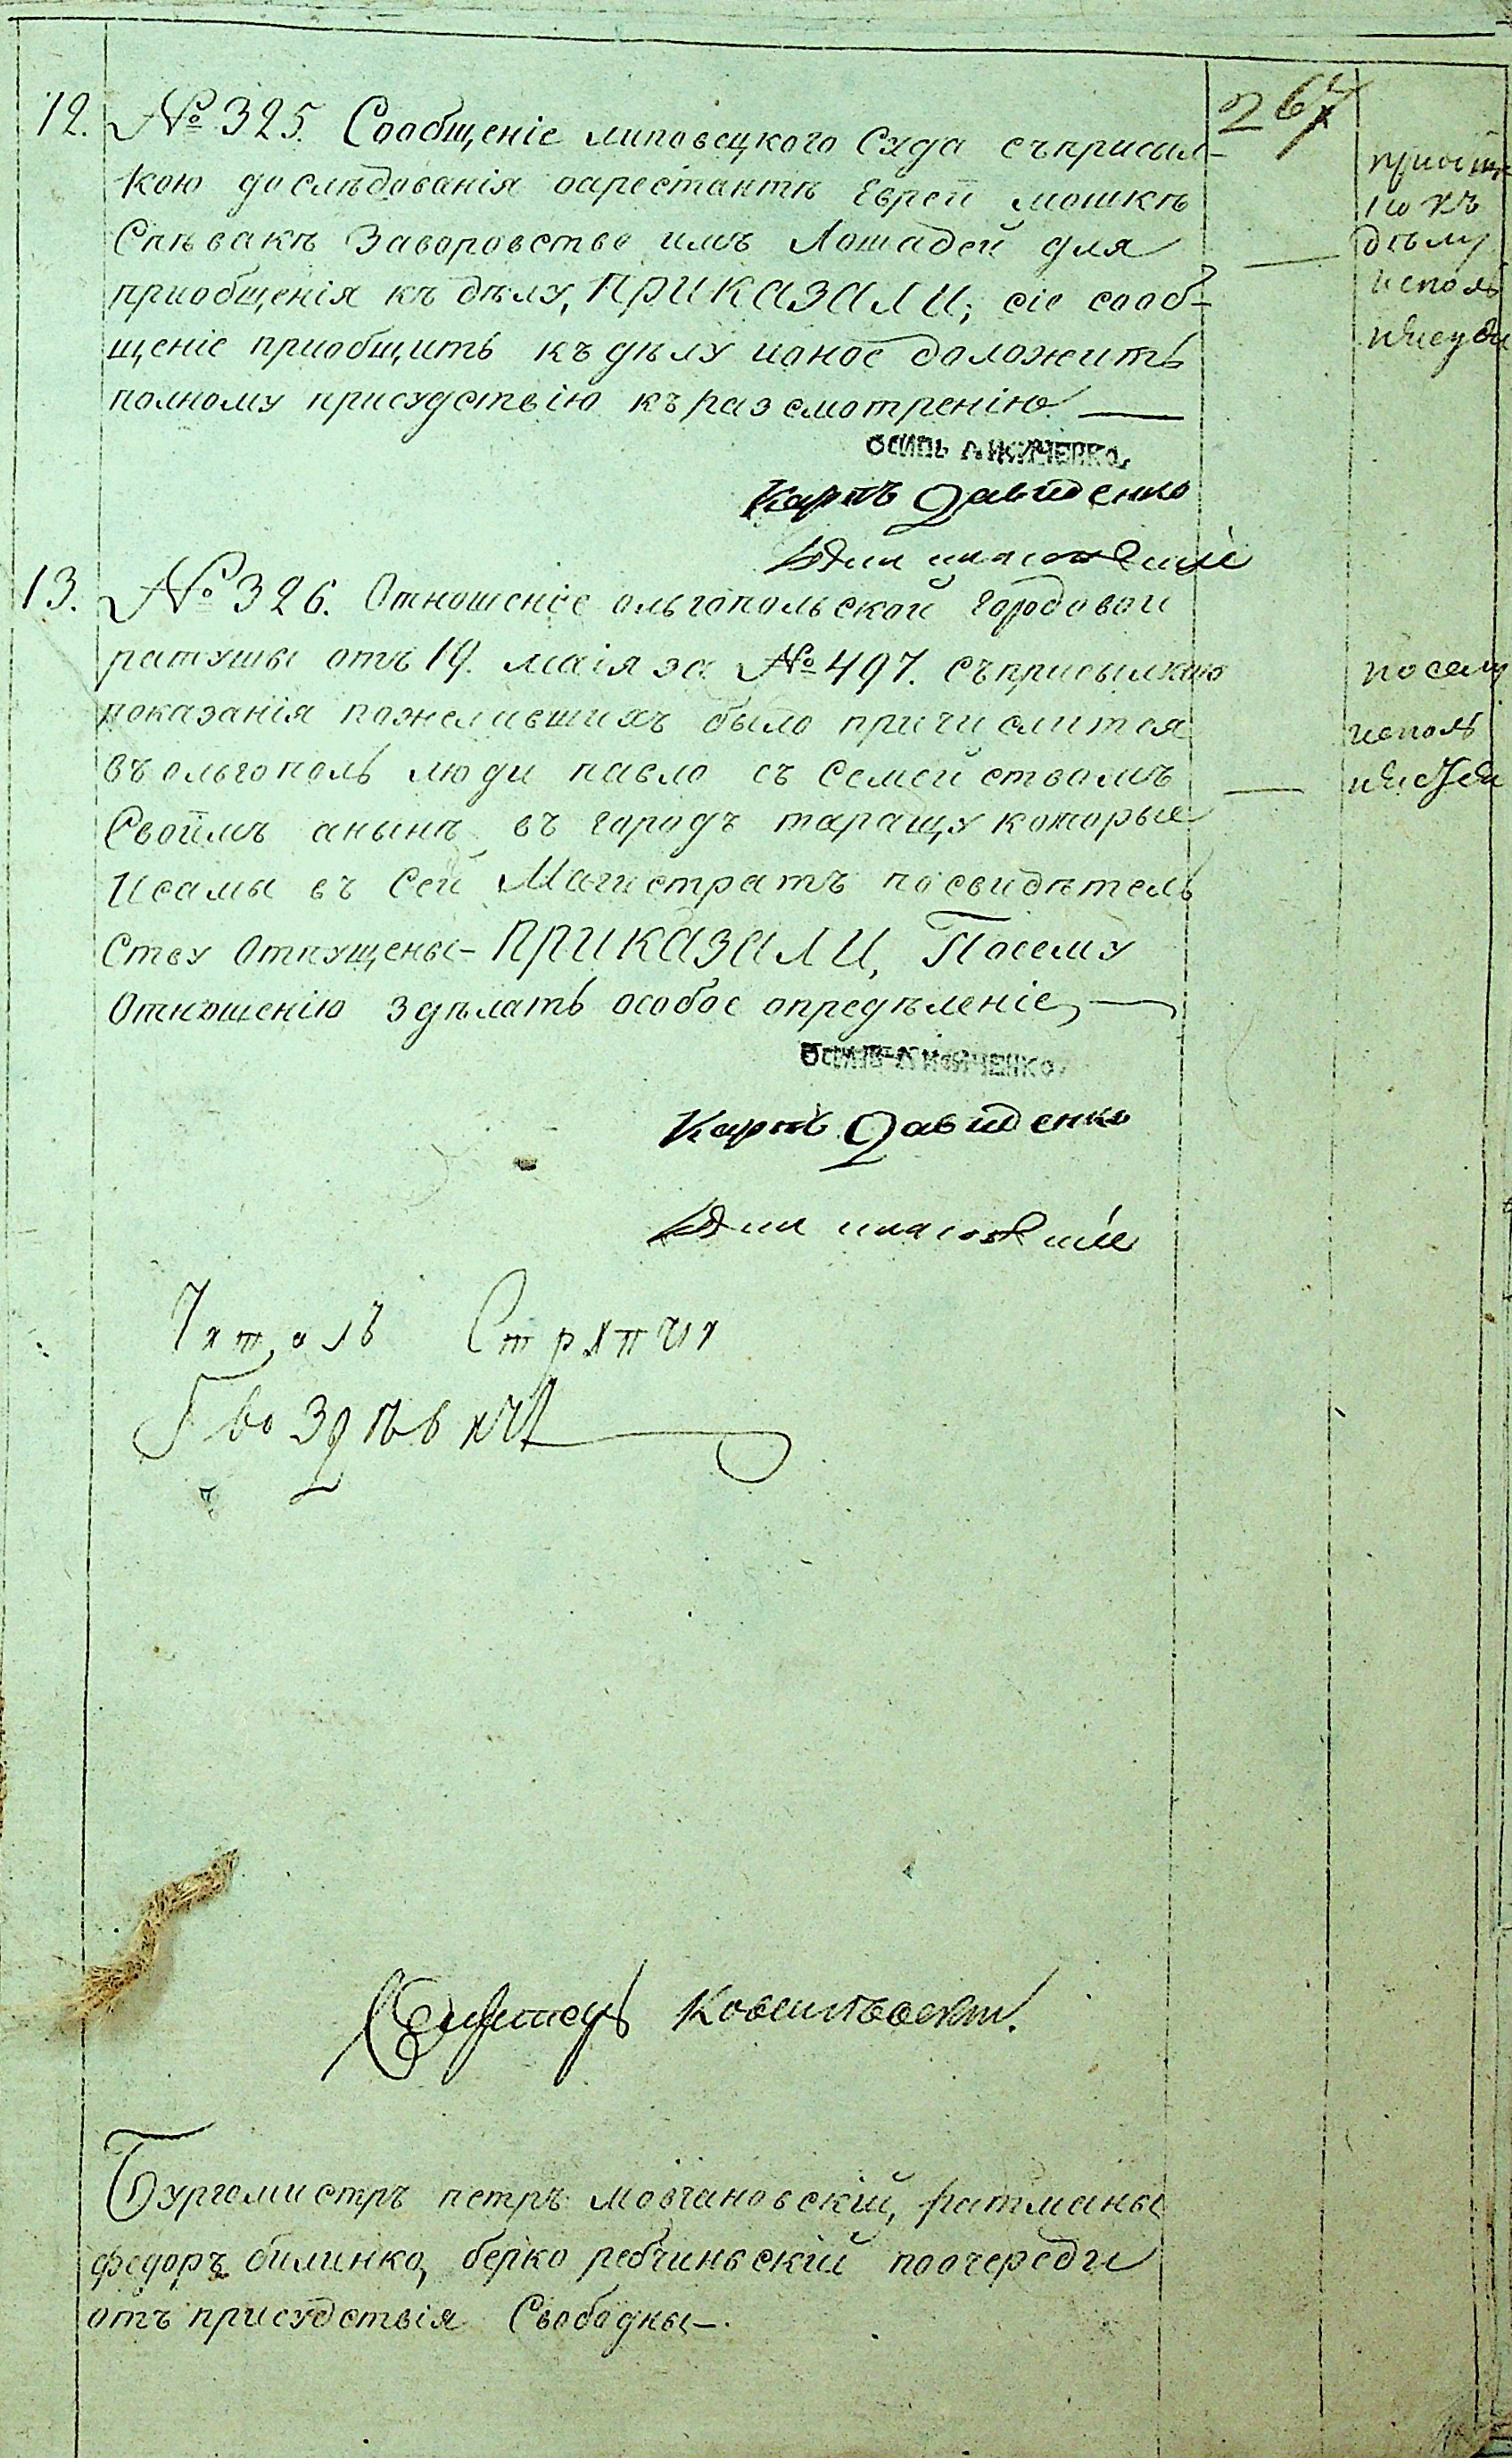 267
12. № 325. Сообщеніе липовецкого Суда съприсыл-
кою дослѣдованія оарестантѣ Еврей мошкѣ
Спѣвакѣ Заворовство имъ Лошадей для
приобщенія къ дѣлу, ПРИКАЗАЛИ; сіе сооб-
щеніе приобщить къ дѣлу ионое доложить
полному присудствію къ разсмотренію —
приобще
но къ
дѣлу
исполъ
Осипъ
Карпъ Давиденко
13. № 326. Отношеніе ольгопольской Городовой
ратушы отъ 19. маія за № 497. съприсылкою
показанія пожелавшихъ было причислится
въ ольгополь люди павло съ Семействомъ
Своймъ анынѣ въ городъ таращу которые
Исамы въ Сей Магистратъ посвидѣтель
Ству Отпущены- ПРИКАЗАЛИ, Посему
Отношенію здѣлать особое опредѣленіе, —
посему
исполъ
Осипъ
Карпъ Давиденко
Читалъ Стряпчій
Гвоздѣвичъ
Секретарь
Бургомистръ петръ Мовчановскій, ратманы
федоръ билинко, берко ребчинскій поочереди
отъ присудствія Свободны-.